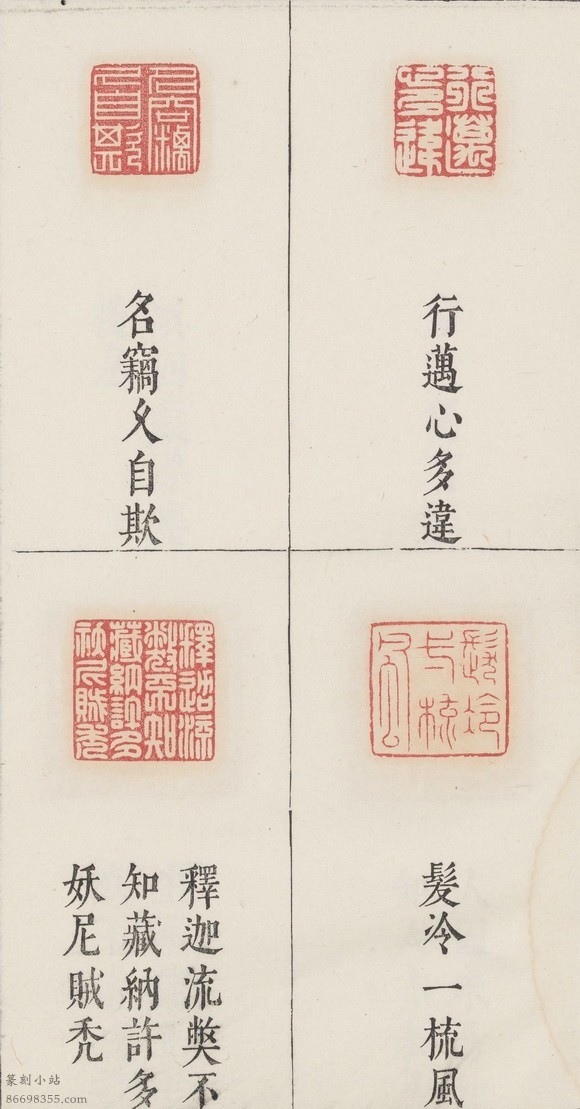 行邁心多違
名竊久自欺
髮冷一梳風
釋迦流弊不
知藏納許多
妖尼賊禿
篆刻小站
86698355.com